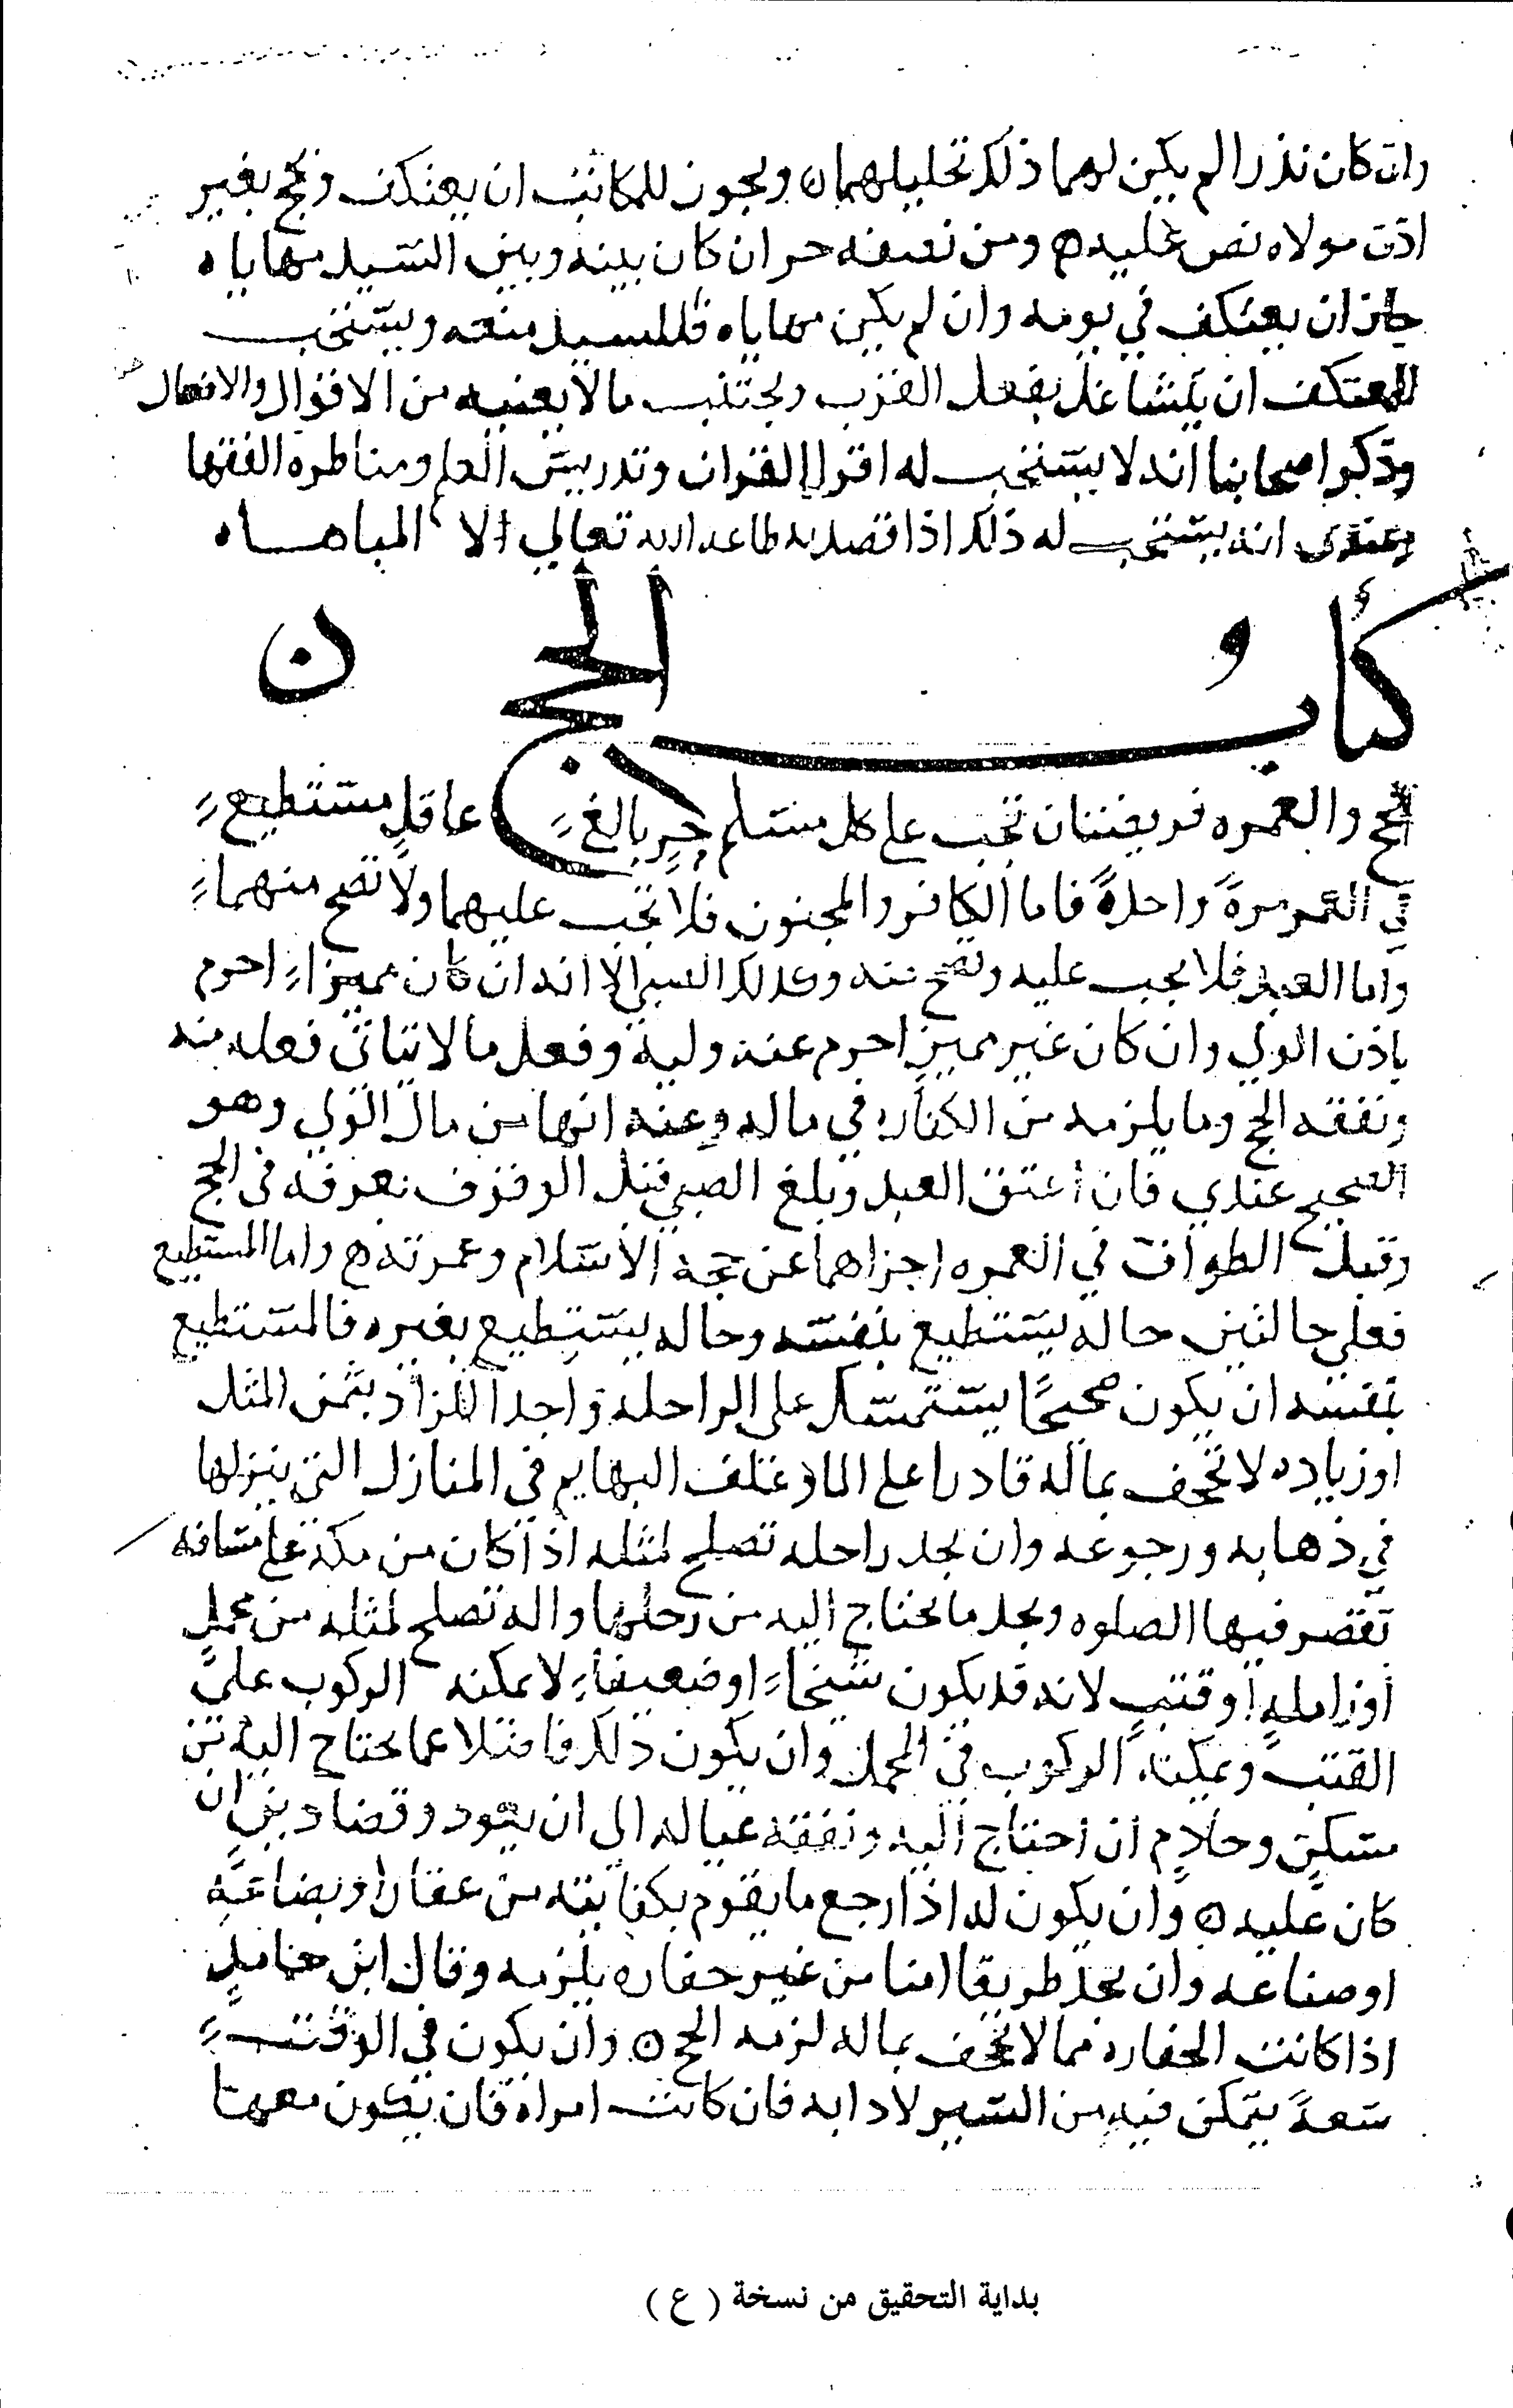 وان كان نذرا لم يكن لهما ذلك تحليلهما ه ويجوز للمكاتب ان يعتكف ويحج بغير
اذن مولاه نص عليه ه ومن نصفه حر ان كان بينه وبين السيد مهاياه
جاز ان يعتكف في يومه وان لم يكن مهاياه فللسيد منعه ويستحب
للمعتكف ان يتشاغل بفعل القرب ويجتنب مالا يعنيه من الاقوال والافعال
وذكر اصحابنا انه لا يستحب له اقرا القران وتدريس العلم ومناظره الفقها
وعندي انه يستحب له ذلك اذا قصد به طاعه الله تعالى لا المباهاه
كتاب الحج ن
الحج والعمره فريضتان تجب على كل مسلم حر بالغ عاقل مستطيع
في العمر مرة واحدة فاما الكافر والمجنون فلا تجب عليهما ولا تصح منهما
واما العبد فلا يجب عليه ويصح منه وكذلك الصبي الا انه ان كان مميزا احرم
باذن الولي وان كان غير مميز احرم عنه وليه وفعل ما لا يتاتى فعله منه
ونفقه الحج وما يلزمه من الكفاره في ماله وعنه انها من مال الولي وهو
الصحيح عندي فان أعتق العبد وبلغ الصبي قبل الوقوف بعرفه في الحج
وقبل الطواف في العمره اجزاهما عن حجة الاسلام وعمرته ه واما المستطيع
فعلى حالتين حاله يستطيع بنفسه وحاله يستطيع بغيره فالمستطيع
بنفسه ان يكون صحيحا يستمسك على الراحله واجدا للزاد بثمن المثل
او زياده لا تجحف بماله قادرا على الما وعلف البهايم في المنازل التي ينزلها
في ذهابه ورجوعه وان يجد راحله تصلح لمثله اذا كان من مكة على مسافه
تقصر فيها الصلوه ويجد ما يحتاج اليه من رحلها واله تصلح لمثله من محمل
أو زامله أو قتب لانه قد يكون شيخا او ضعيفا لا يمكنه الركوب على
القتب ويمكنه الركوب في المحمل وان يكون ذلك فاضلا عما يحتاج اليه من
مسكن وخادم ان احتاج اليه ونفقه عياله الى ان يعود وقضا دين ان
كان عليه ه وان يكون له اذا رجع ما يقوم بكفايته من عقار او بضاعة
او صناعه وان يجد طريقا امنا من غير خفاره يلزمه وقال ابن حامد
اذا كانت الخفاره مما لا تجحف بماله لزمه الحج ه وان يكون في الوقت
سعة يتمكن فيه من السير لادايه فان كانت امراة فان يكون معها
بداية التحقيق من نسخة ( ع )